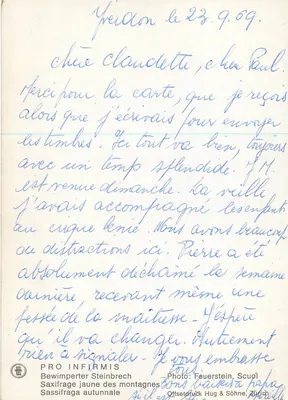 Yverdon le 23.9.69
Chère Claudette, cher Paul.
Merci pour la carte, que je reçois
alors que j'écrivais pour envoyer
les timbres. Ici tout va bien, toujours
avec un temps splendide. J.M.
est venue dimanche. La veille
j'avais accompagné les enfants
au cirque Knie. Nous avons beaucoup
de distractions ici. Pierre a été
absolument déchaîné la semaine
dernière, recevant même une
fessée de la maîtresse - J'espère
qu'il va changer. Autrement
rien à signaler - Je vous embrasse
tous.
bons baisers à papa
s'il
PRO INFIRMIS
Bewimperter Steinbrech
Saxifrage jaune des montagnes
Sassifraga autunnale
Photo: Feuerstein, Scuol
Offsetdruck Hug & Söhne, Zürich